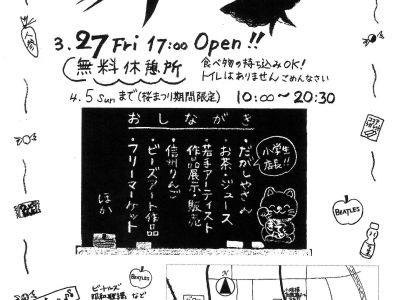 3.27 Fri 17:00 Open!!
無料休憩所
食べ物の持ち込みOK!
トイレはありません ごめんなさい
4.5 sun まで(桜まつり期間限定) 10:00〜20:30
おしながき
・だがしやさん
・お茶・ジュース
・若手アーティスト
作品展示・販売
・信州りんご
・ビーズアート作品
・フリーマーケット
ほか
小学生
店長!!
人参
BEATLES
BEATLES
ビートルズ
昭和歌謡
など
N